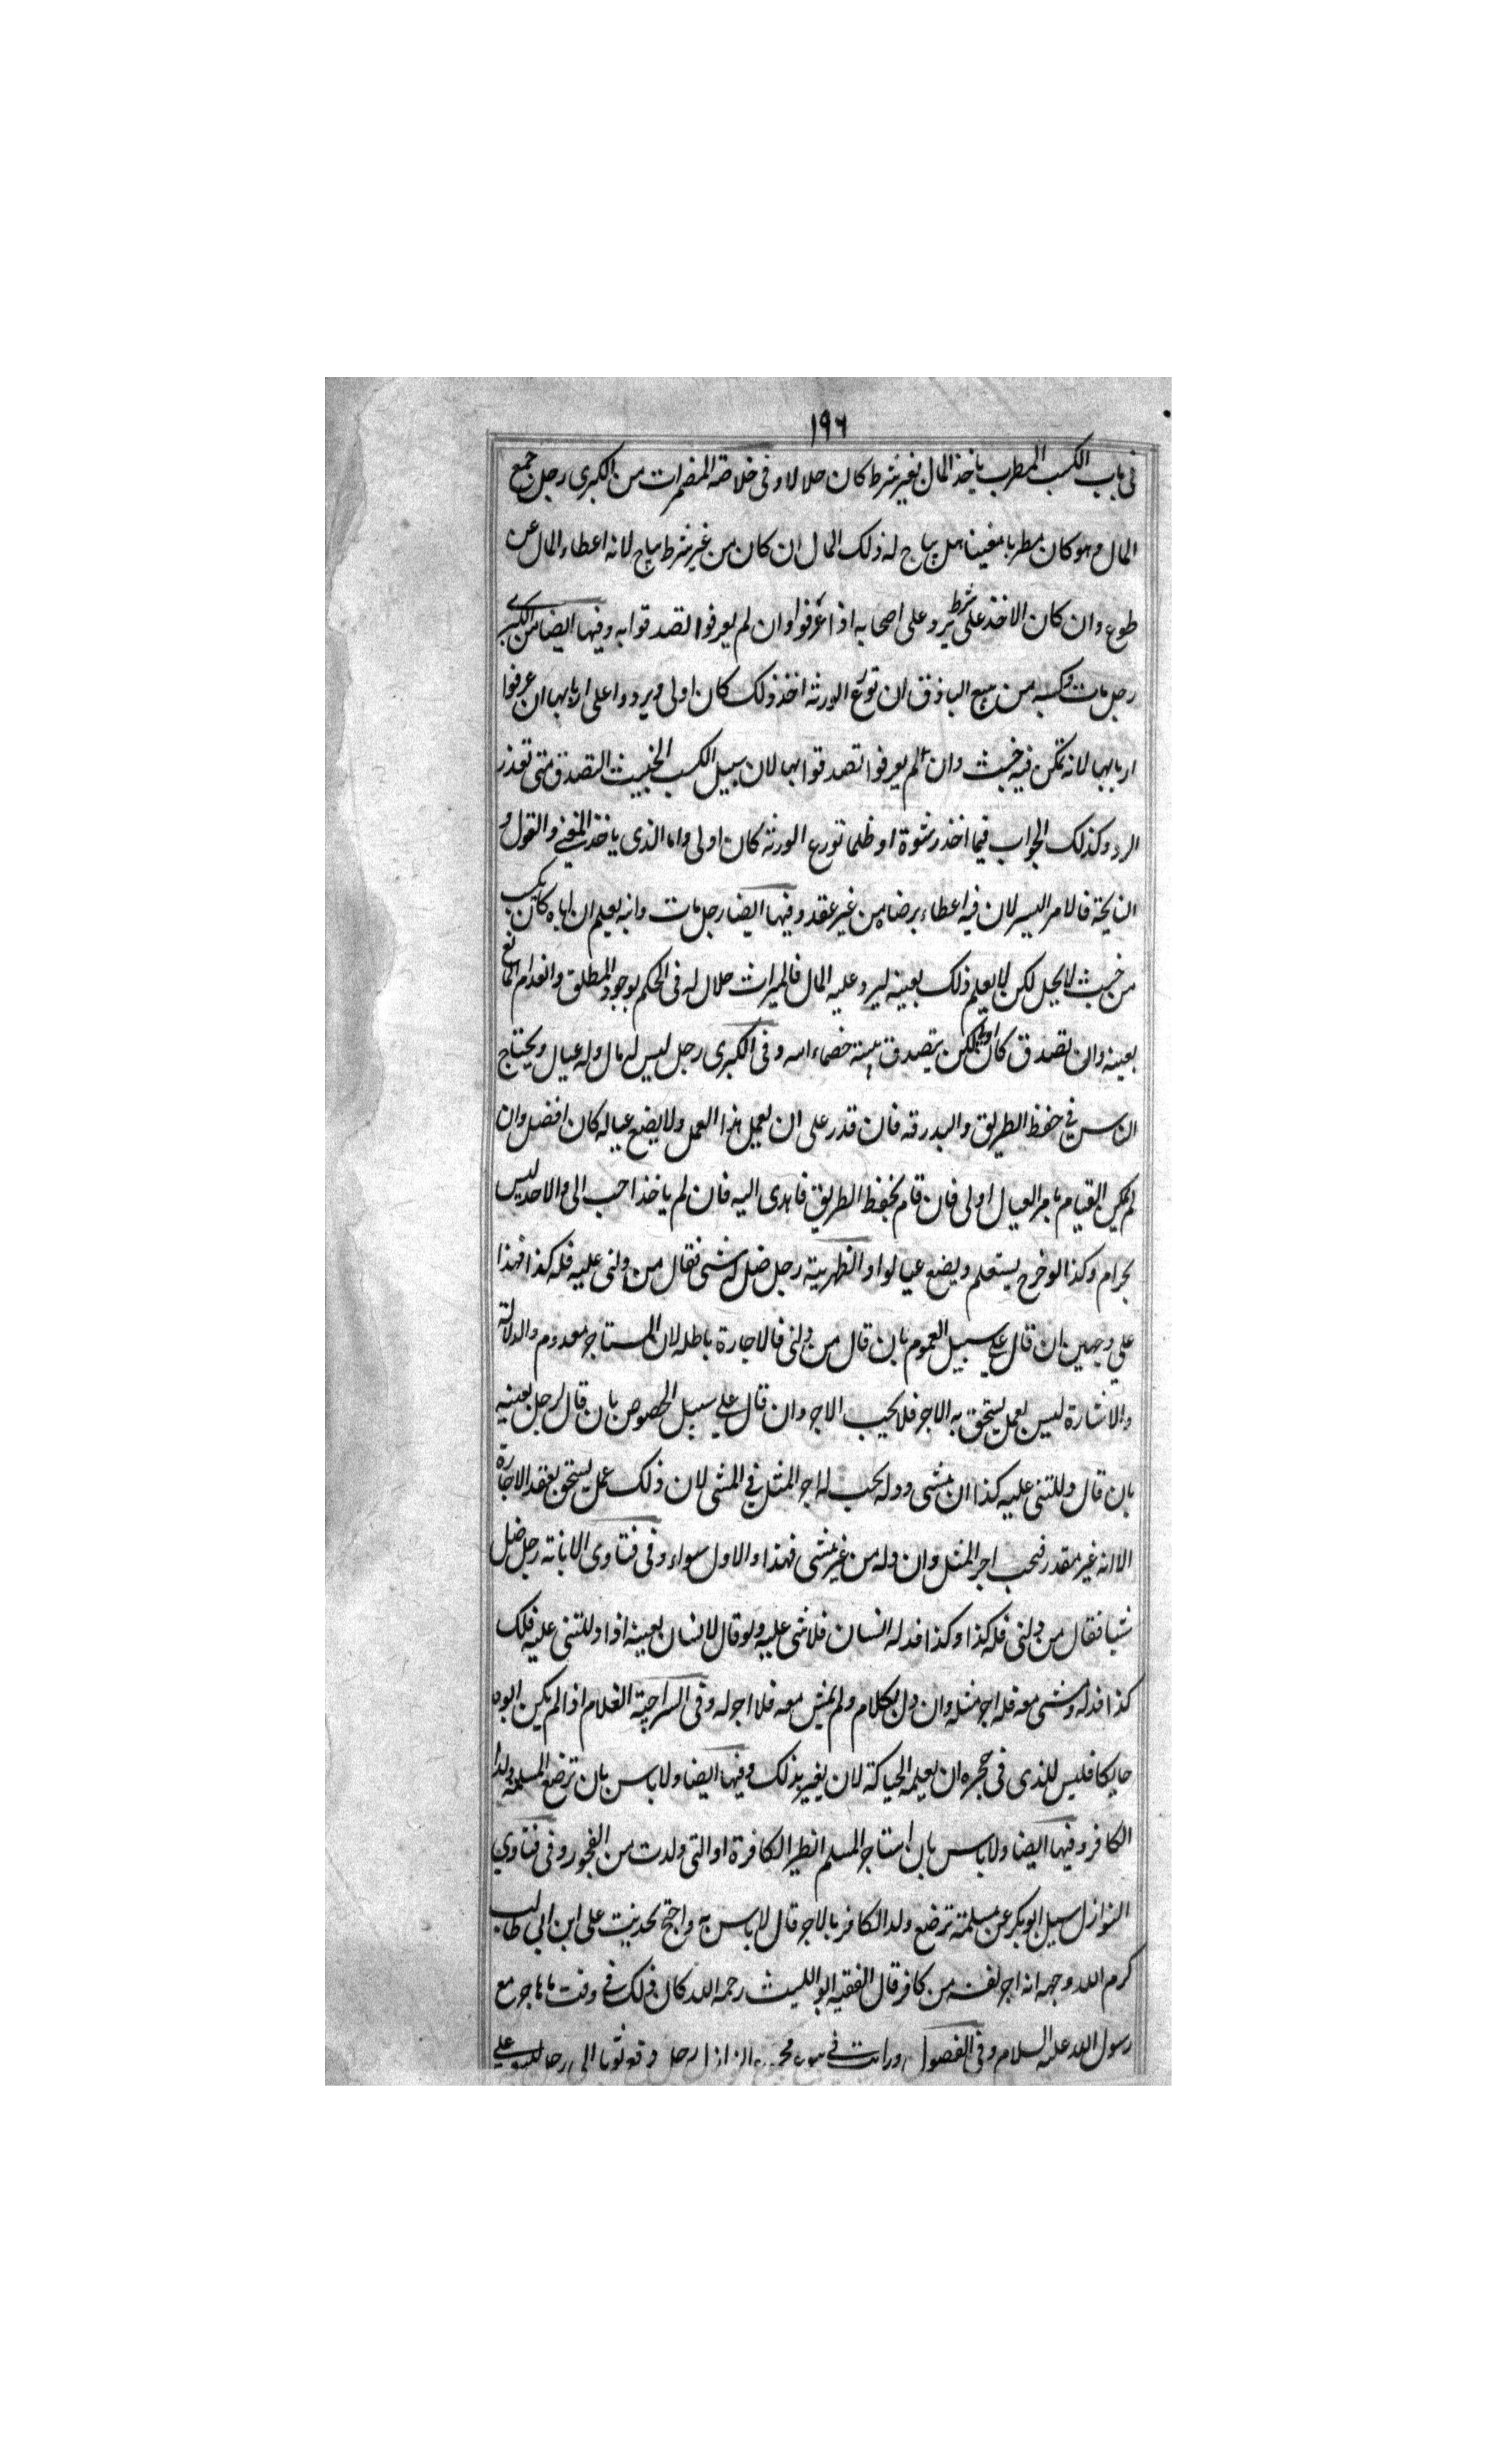 ١٩٦
فى باب الكسب المطرب ياخذ المال بغير شرط كان حلالا وفى خلاصة المضمرات من الكبرى رجل جمع
المال وهو كان مطربا مغنيا هل يباح له ذلك المال ان كان من غير شرط يباح لانه اعطاء المال عن
طوع وان كان الاخذ على شرط يرد على اصحابه اذا عرفوا وان لم يعرفوا تصدقوا به وفيها ايضا من الكبرى
رجل مات وكسبه من بيع الباذق ان تورع الورثة اخذ ذلك كان اولى ويردوا على اربابها ان عرفوا
اربابها لانه تمكن فيه خبث وان لم يعرفوا تصدقوا بها لان سبيل الكسب الخبيث التصدق متى تعذر
الرد وكذلك الجواب فيما اخذ رشوة او ظلما تورع الورثة كان اولى واما الذى ياخذ المغنى والقول و
النايحة فالامر ايسر لان فيه اعطاء برضاه من غير عقد وفيها ايضا رجل مات وابنه يعلم ان اباه كان يكسب
من خبث لا يحل لكن لا يعلم ذلك بعينه ليرد عليه المال فالميراث حلال له فى الحكم لوجود المطلق وانعدام المانع
بعينه وان تصدق كان اولى لكن يتصدق بنية خصماء ابيه وفى الكبرى رجل ليس له مال وله عيال ويحتاج
الناس فى حفظ الطريق والبدرقه فان قدر على ان يعمل هذا العمل ولا يضيع عياله كان افضل وان
لم يمكن القيام بامر العيال اولى فان قام بحفظ الطريق فاهدى اليه فان لم ياخذ احب الى والاخذ ليس
بحرام وكذا لو خرج يستعلم ويضع عيالو او الظهرية رجل ضل له شى فقال من دلنى عليه فله كذا فهذا
على وجهين ان قال على سبيل العموم بان قال من دلنى فالاجارة باطله لان المستاجر معدوم والدلالة
والاشارة ليس بعمل يستحق به الاجر فلا يجب الاجر وان قال على سبيل الخصوص بان قال لرجل بعينه
بان قال دللتنى عليه كذا ان مشى ودله يجب له اجر المثل فى المشى لان ذلك عمل يستحق بعقد الاجارة
الا انه غير مقدر فيجب اجر المثل وان دله من غير مشى فهذا والاول سواء وفى فتاوى الابانة رجل ضل
شيا فقال من دلنى فله كذا وكذا فدله انسان فلا شى عليه ولو قال لانسان بعينه اذا دللتنى عليه فلك
كذا فدله ومشى معه فله اجر مثله وان دل بكلام ولم يمش معه فلا اجر له وفى السراجية الغلام اذا لم يكن ابوه
حايكا فليس للذى فى حجره ان يعلمه الحياكة لان يعير بذلك وفيها ايضا ولا باس بان ترضع المسلمة ولد
الكافر وفيها ايضا ولا باس بان استاجر المسلم الظير الكافرة او التى ولدت من الفجور وفى فتاوى
النوازل سيل ابو بكر عن مسلمة ترضع ولد الكافر بالاجر قال لا باس به واحتج بحديث على ابن ابى طالب
كرم الله وجهه انه اجر نفسه من كافر قال الفقيه ابو الليث رحمه الله كان ذلك فى وقت ما هاجر مع
رسول الله عليه السلام وفى الفصول ورايت فى رجل دفع ثوبا الى رجل ليبيعه على